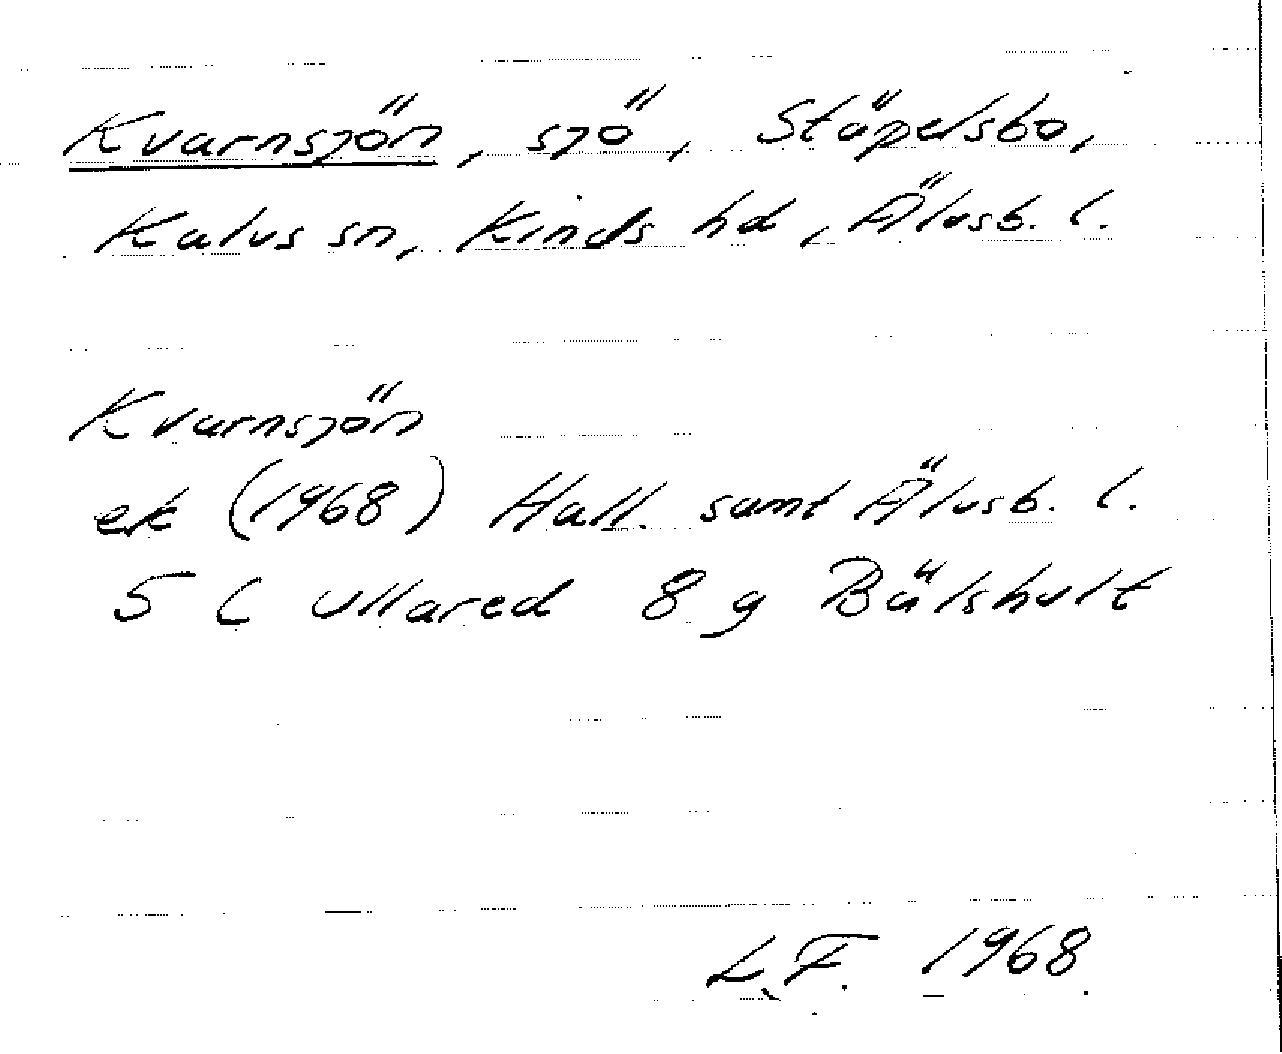 Kvarnsjön, sjö, Stäpelsbo,
Kalvs sn, Kinds hd, Älvsb. l.
Kvarnsjön
ek (1968) Hall. samt Älvsb. l.
5 C Ullared 8 g Bälshult
L.F. 1968